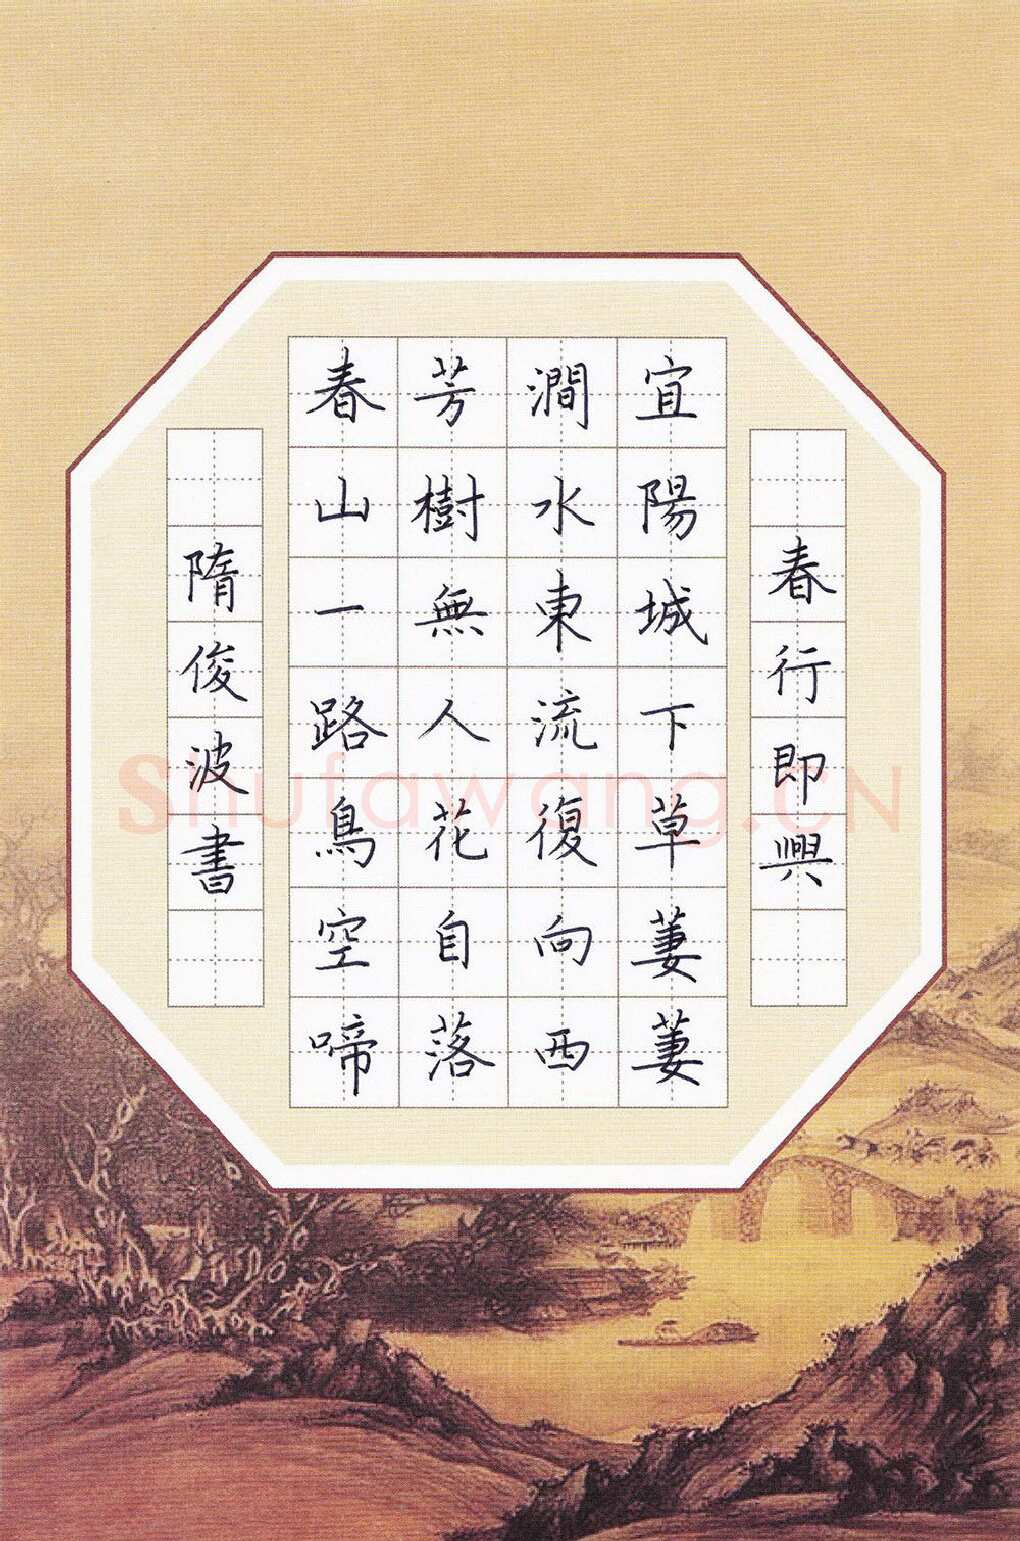 春行即興
宜陽城下草萋萋
澗水東流復向西
芳樹無人花自落
春山一路鳥空啼
隋俊波書
Shufawang.CN